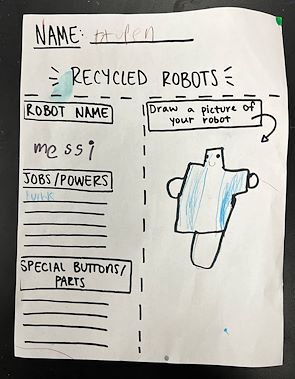 NAME:
RECYCLED ROBOTS
ROBOT NAME
Draw a picture of
your robot
messi
JOBS/POWERS
SPECIAL BUTTONS/
PARTS